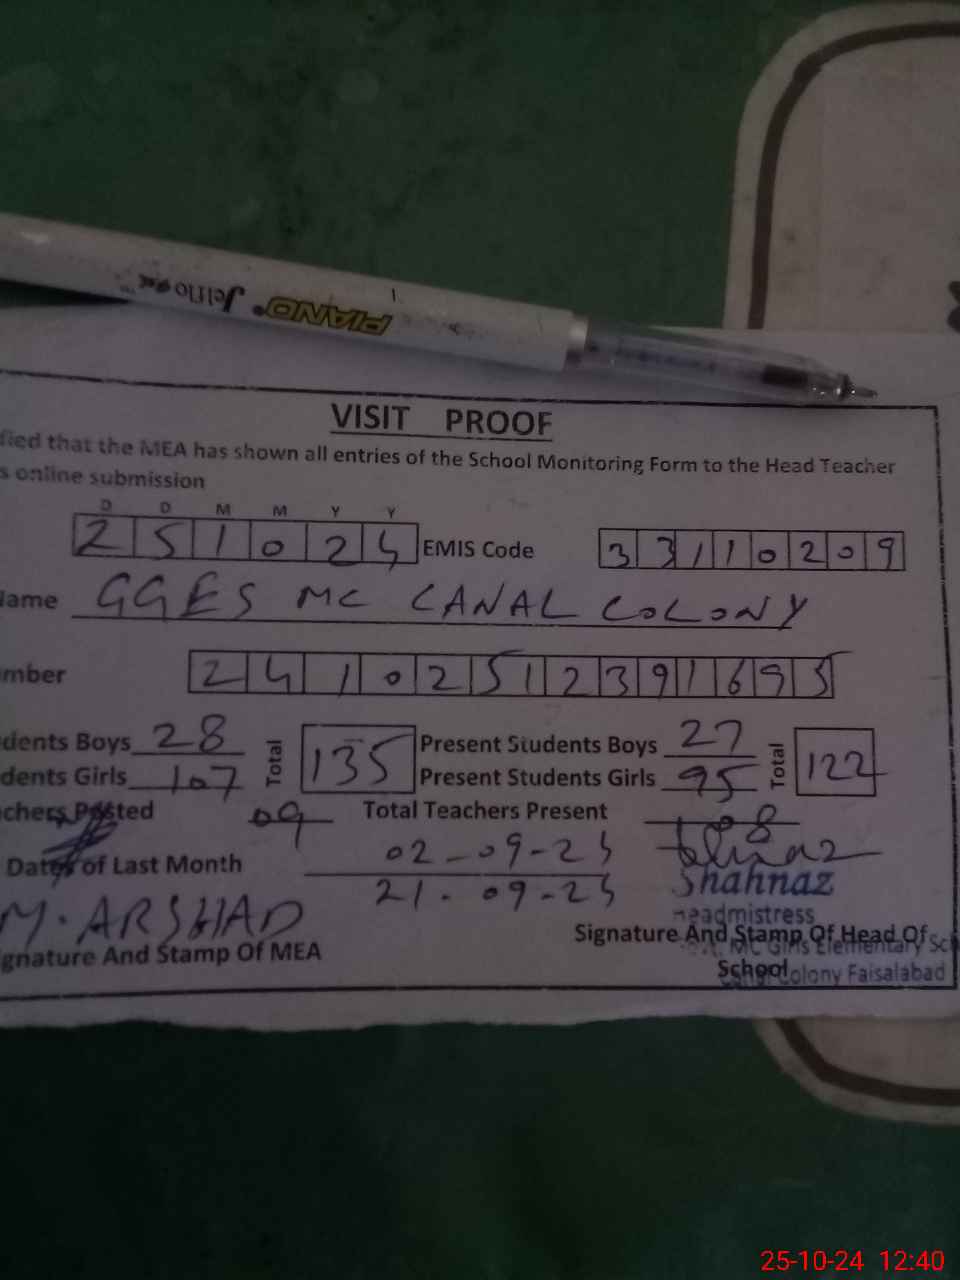 PIANO Jelflo
VISIT PROOF
fied that the MEA has shown all entries of the School Monitoring Form to the Head Teacher
s online submission
D D M M Y Y
2 5 1 0 2 4 EMIS Code 3 3 1 1 0 2 0 9
Name GGES MC CANAL COLONY
mber 2 4 1 0 2 5 1 2 3 9 1 6 9 5
dents Boys 28 Total 135 Present Students Boys 27 Total 122
dents Girls 107 Present Students Girls 95
chers Posted 09 Total Teachers Present 08
Dates of Last Month 02-09-24
21-09-24
Shahnaz
M. ARSHAD
Headmistress
gnature And Stamp Of MEA
Signature And Stamp Of Head Of
School
MC Girls Elementary Sc
Canal Colony Faisalabad
25-10-24 12:40